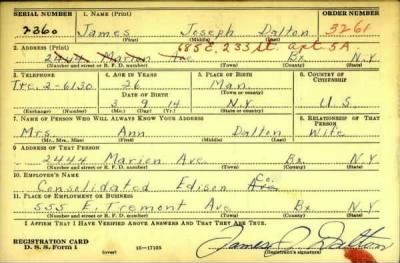 SERIAL NUMBER 1. NAME (Print) ORDER NUMBER
2360 James Joseph Dalton 3261
(First) (Middle) (Last)
2. ADDRESS (Print) 685 E. 233 St. apt 5A
2444 Marion Ave Bx. N.Y.
(Number and street or R. F. D. number) (Town) (County) (State)
3. TELEPHONE 4. AGE IN YEARS 5. PLACE OF BIRTH 6. COUNTRY OF CITIZENSHIP
Tre. 2-6130 26 Man.
DATE OF BIRTH (Town or county)
3 9 14 N.Y. U.S.
(Exchange) (Number) (Mo.) (Day) (Yr.) (State or country)
7. NAME OF PERSON WHO WILL ALWAYS KNOW YOUR ADDRESS 8. RELATIONSHIP OF THAT PERSON
Mrs. Ann Dalton Wife
(Mr., Mrs., Miss) (First) (Middle) (Last)
9. ADDRESS OF THAT PERSON
2444 Marion Ave Bx. N.Y.
(Number and street or R. F. D. number) (Town) (County) (State)
10. EMPLOYER'S NAME
Consolidated Edison Co.
11. PLACE OF EMPLOYMENT OR BUSINESS
555 E. Tremont Ave Bx. N.Y.
(Number and street or R. F. D. number) (Town) (County) (State)
I AFFIRM THAT I HAVE VERIFIED ABOVE ANSWERS AND THAT THEY ARE TRUE.
REGISTRATION CARD
D. S. S. Form 1 16-17105 (Registrant's signature)
James J. Dalton